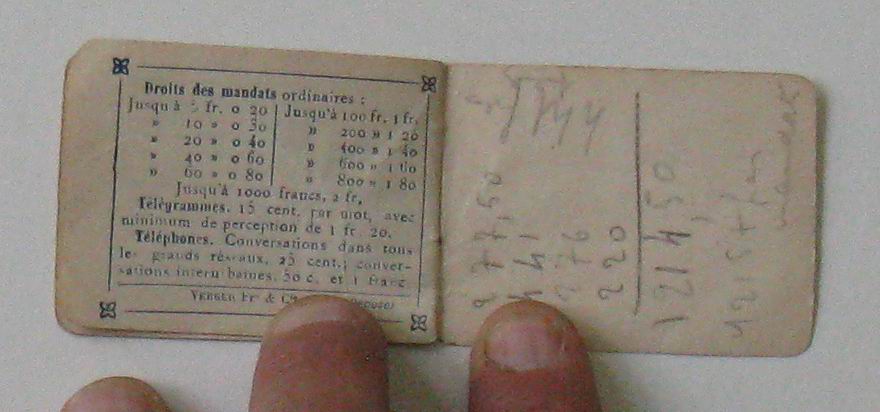 Droits des mandats ordinaires :
Jusqu'à 5 fr. 0 20 Jusqu'à 100 fr. 1 fr.
» 10 » 0 30 » 200 » 1 20
» 20 » 0 40 » 400 » 1 40
» 40 » 0 60 » 600 » 1 60
» 60 » 0 80 » 800 » 1 80
Jusqu'à 1000 francs, 2 fr.
Télégrammes. 15 cent. par mot, avec
minimum de perception de 1 fr. 20.
Téléphones. Conversations dans tous
les grands réseaux, 25 cent.; conver-
sations interurbaines, 50 c. et 1 franc
VERGER Fr &
277,50
441
276
220
1214,50